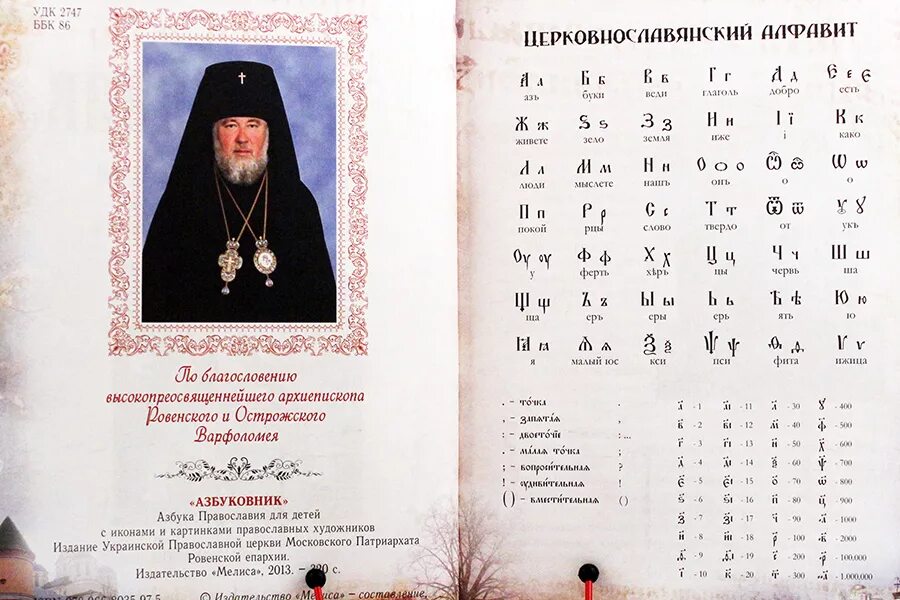 УДК 2747
ББК 86
По благословению
высокопреосвященнейшего архиепископа
Ровенского и Острожского
Варфоломея
«АЗБУКОВНИК»
Азбука Православия для детей
с иконами и картинками православных художников
Издание Украинской Православной церкви Московского Патриархата
Ровенской епархии.
Издательство «Мелиса», 2013. –
© Издательство «Мелиса» – составление,
ЦЕРКОВНОСЛАВЯНСКИЙ АЛФАВИТ
А а Б б В в Г г Д д Є е є
азъ буки веди глаголь добро есть
Ж ж Ѕ ѕ З з И и І ї К к
живете зело земля иже і како
Л л М м Н н О о о Ѽ ѽ Ѡ ѡ
люди мыслете нашъ онъ о о
П п Р р С с Т т Ѿ ѿ Ꙋ ꙋ
покой рцы слово твердо от укъ
Оу оу Ф ф Х х Ц ц Ч ч Ш ш
у ферть хѣръ цы червь ша
Щ щ Ъ ъ Ы ы Ь ь Ѣ ѣ Ю ю
ща еръ еры ерь ять ю
Ꙗ ꙗ Ѧ ѧ Ѯ ѯ Ѱ ѱ Ѳ ѳ Ѵ ѵ
я малый юс кси пси фита ижица
. – то́чка .
, – запѧта́ѧ ,
: – двоето́чїе : ...
. – ма́лаѧ то́чка .
; – вопроси́тельнаѧ ?
! – оудиви́тельнаѧ !
() – вмѣсти́тельнаѧ ()
а҃ - 1 а҃і - 11 л҃ - 30 у҃ - 400
в҃ - 2 в҃і - 12 м҃ - 40 ф҃ - 500
г҃ - 3 г҃і - 13 н҃ - 50 х҃ - 600
д҃ - 4 д҃і - 14 ѯ҃ - 60 ѱ҃ - 700
є҃ - 5 є҃і - 15 о҃ - 70 ѡ҃ - 800
ѕ҃ - 6 ѕ҃і - 16 п҃ - 80 ц҃ - 900
з҃ - 7 з҃і - 17 ч҃ - 90 ҂а҃ - 1000
и҃ - 8 и҃і - 18 р҃ - 100 ҂в҃ - 2000
ѳ҃ - 9 ѳ҃і - 19 с҃ - 200 - 100.000
і҃ - 10 к҃ - 20 т҃ - 300 - 1.000.000